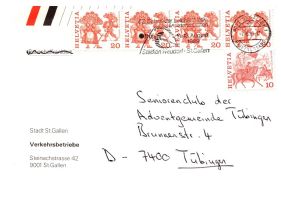 HELVETIA 20
HELVETIA 20
HELVETIA 20
HELVETIA 20
HELVETIA 10
Seniorenclub der
Adventgemeinde Tübingen
Brunnenstr. 4
D - 7400 Tübingen
Stadt St.Gallen
Verkehrsbetriebe
Steinachstrasse 42
9001 St.Gallen